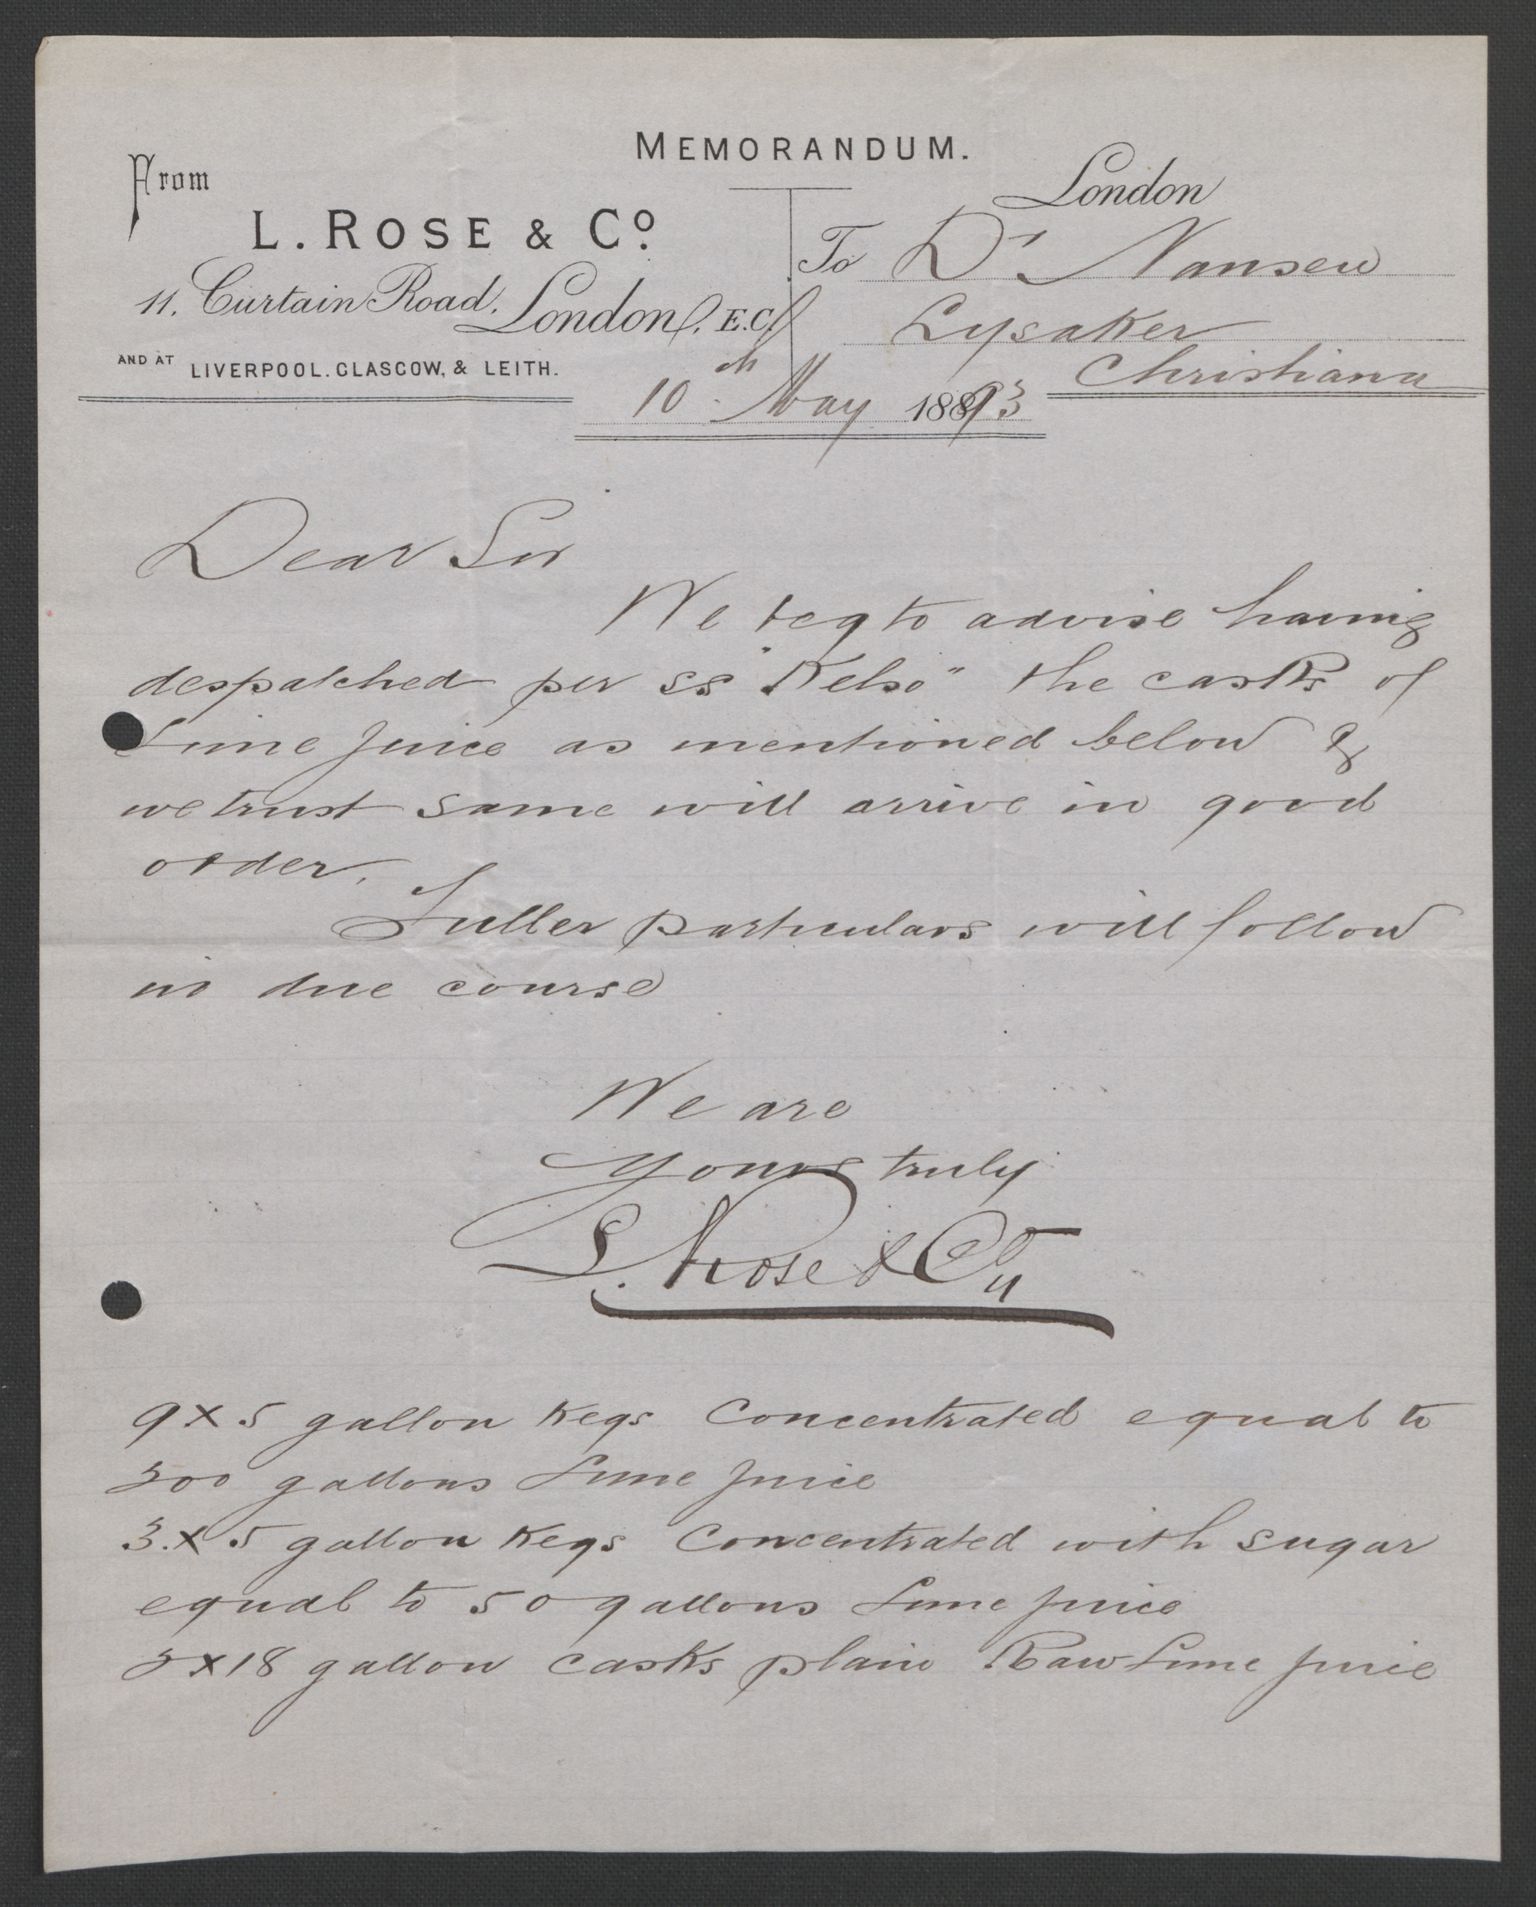 MEMORANDUM.
From
L. ROSE & Co.
11. Curtain Road, London, E.C.
AND AT LIVERPOOL. GLASCOW, & LEITH.
London
To Dr Nansen
Lysaker
Christiana
10th May 1893
Dear Sir
We beg to advise having
despatched per ss "Kelso" the casks of
Lime Juice as mentioned below &
we trust same will arrive in good
order.
Fuller particulars will follow
in due course
We are
Yours truly
L. Rose & Co
9 x 5 gallon Kegs Concentrated equal to
gallons Lime Juice
3 x 5 gallon Kegs Concentrated with sugar
equal to 50 gallons Lime Juice
x 18 gallon casks plain Raw Lime Juice